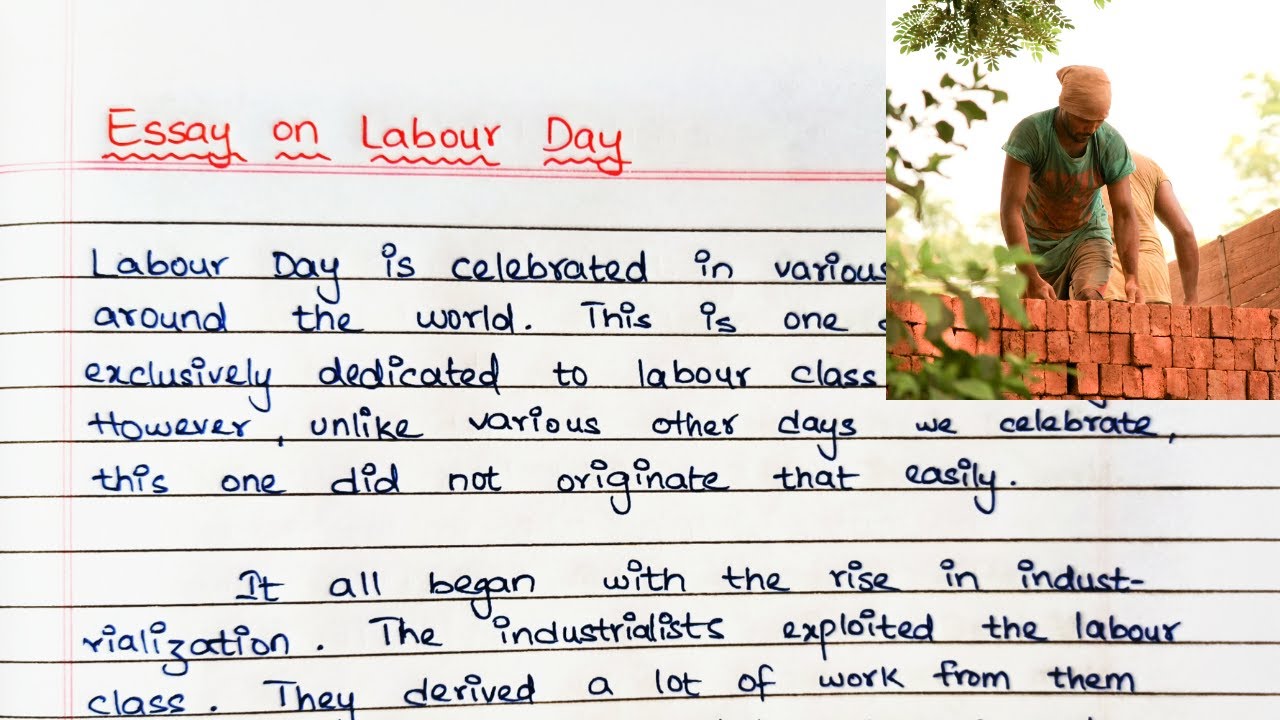 Essay on Labour Day
Labour Day is celebrated in various
around the world. This is one
exclusively dedicated to labour class
However, unlike various other days we celebrate,
this one did not originate that easily.
It all began with the rise in indust-
rialization. The industrialists exploited the labour
class. They derived a lot of work from them